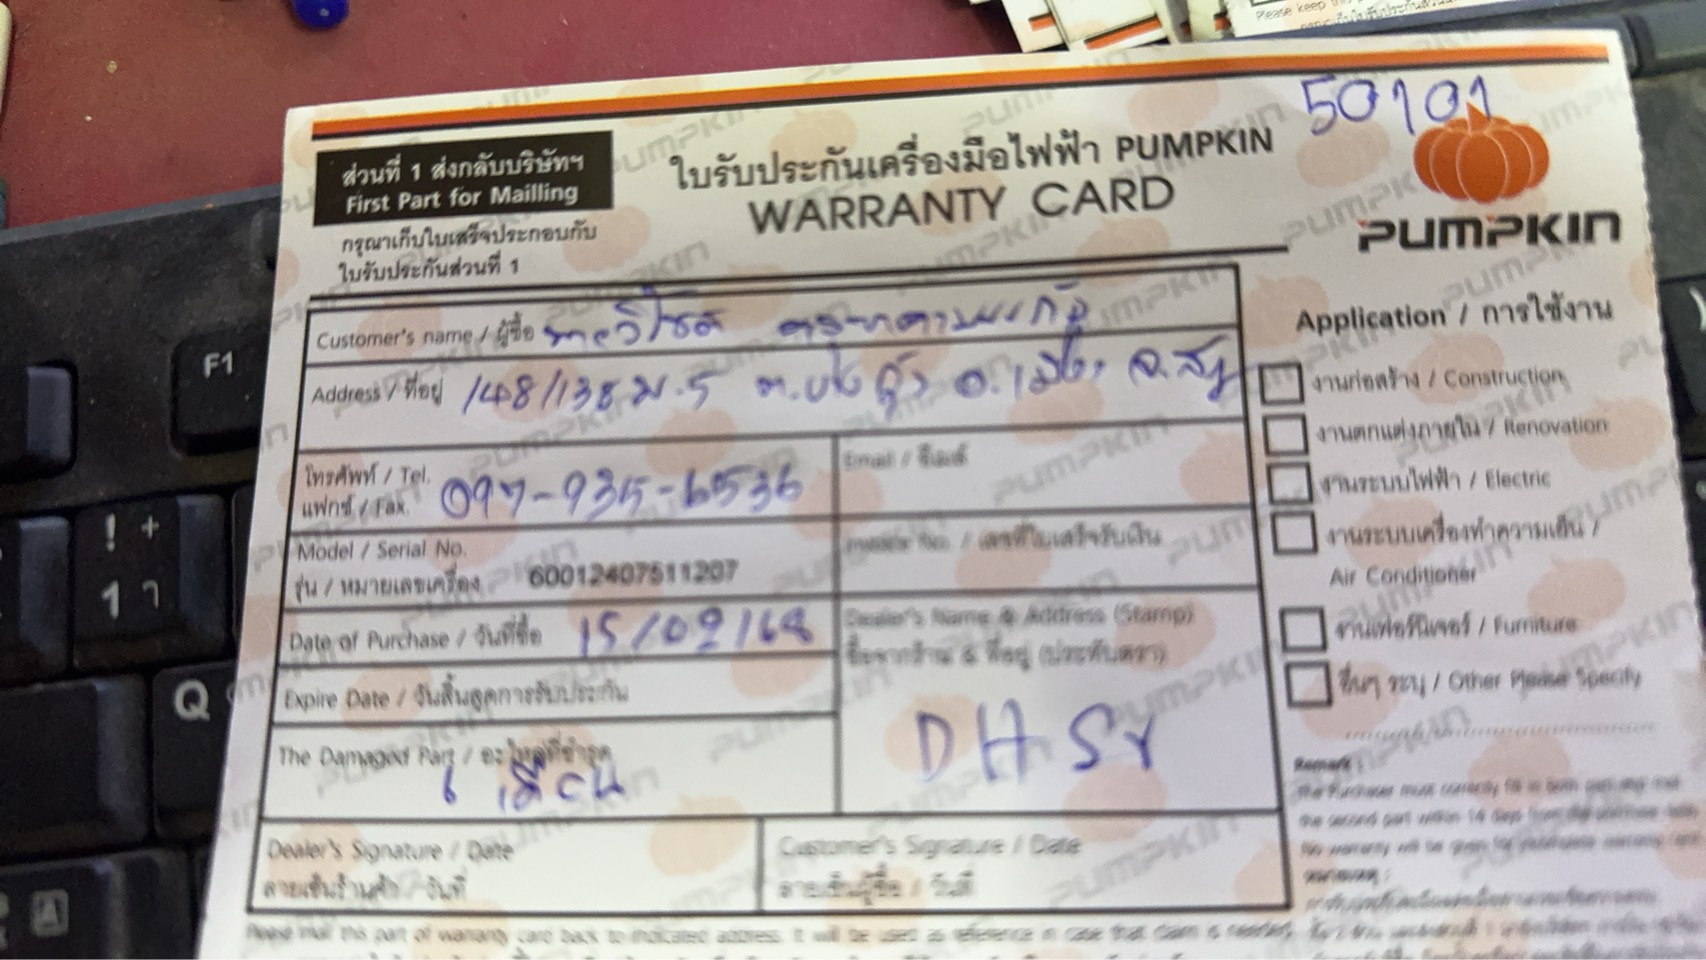 Please keep
50101
ส่วนที่ 1 ส่งกลับบริษัทฯ
First Part for Mailling
ใบรับประกันเครื่องมือไฟฟ้า PUMPKIN
WARRANTY CARD
PUMPKIN
กรุณาเก็บใบเสร็จประกอบกับ
ใบรับประกันส่วนที่ 1
Customer's name / ผู้ซื้อ
Address / ที่อยู่ 148/138 ม.5 อ.เมือง
โทรศัพท์ / Tel. 097-935-6536
แฟกซ์ / Fax.
Email / อีเมล์
Model / Serial No.
รุ่น / หมายเลขเครื่อง 60012407511207
Invoice No. / เลขที่ใบเสร็จรับเงิน
Date of Purchase / วันที่ซื้อ 15/02/68
Dealer's Name & Address (Stamp)
ซื้อจากร้าน & ที่อยู่ (ประทับตรา)
Expire Date / วันสิ้นสุดการรับประกัน
The Damaged Part / อะไหล่ที่ชำรุด
6 เดือน
DH
Dealer's Signature / Date
ลายเซ็นร้านค้า / วันที่
Customer's Signature / Date
ลายเซ็นผู้ซื้อ / วันที่
Application / การใช้งาน
งานก่อสร้าง / Construction
งานตกแต่งภายใน / Renovation
งานระบบไฟฟ้า / Electric
งานระบบเครื่องทำความเย็น /
Air Conditioner
งานเฟอร์นิเจอร์ / Furniture
อื่นๆ ระบุ / Other Please Specify
Remark :
The Purchaser must correctly fill in both part and mail
the second part within 14 days from the purchase date
หมายเหตุ :
Please mail this part of warranty card back to indicated address. It will be used as reference in case that claim is needed.
F1
! +
1 ๅ
Q
A